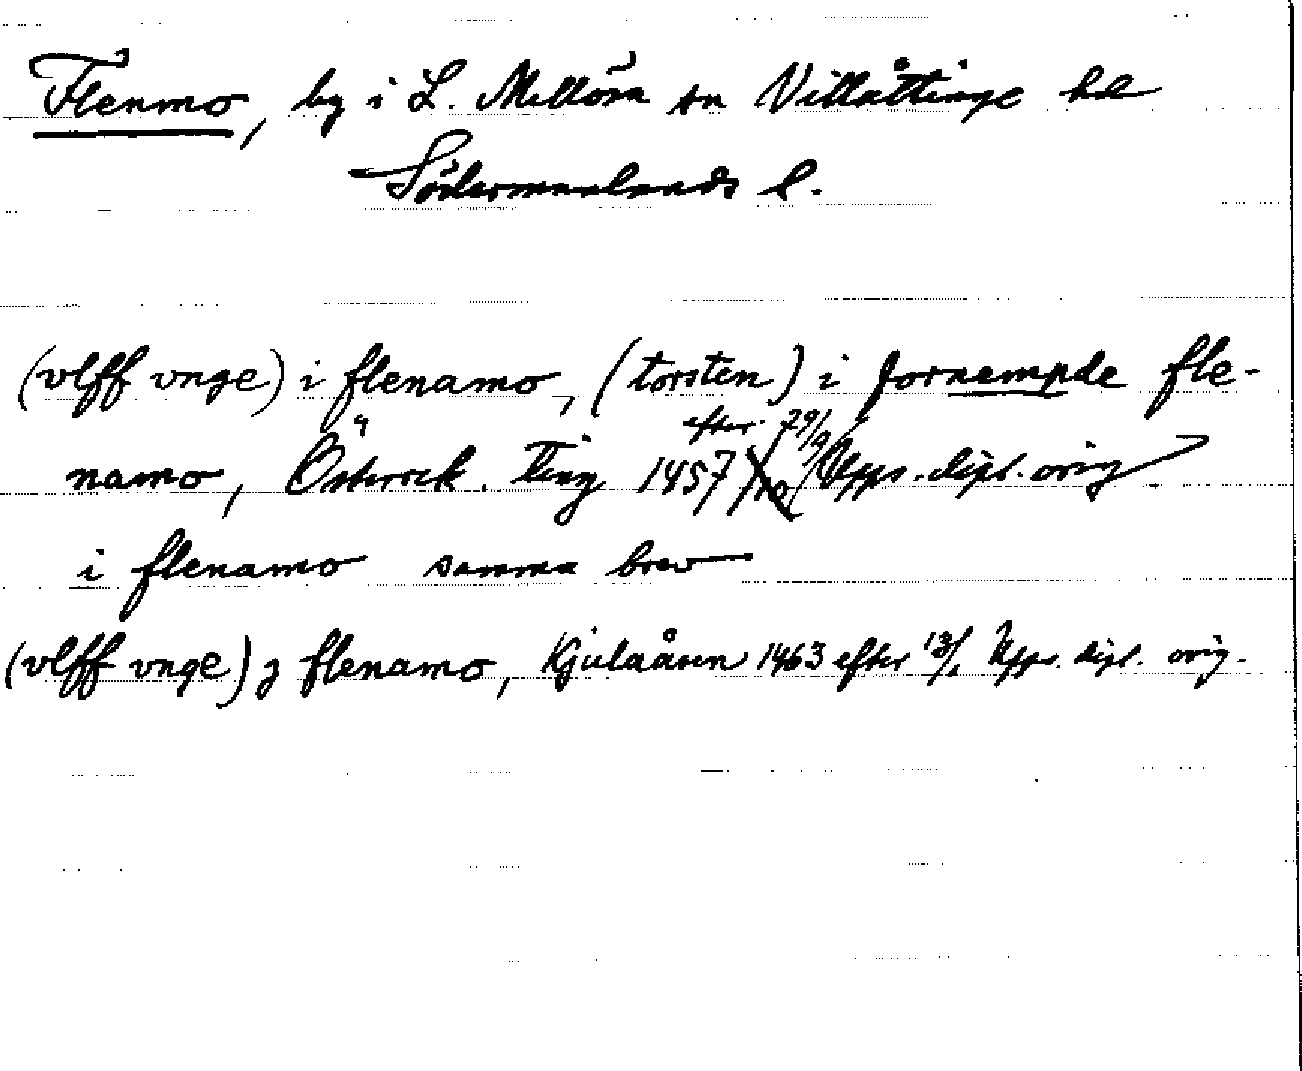 Flenmo, by i L. Mellösa sn Villåttinge hd
Södermanlands l.
(vlff vnge) i flenamo, (torsten) i fornempde fle-
efter 29/9
namo, Österrek. Ting 1457 Upps. dipl. orig
i flenamo samma brev
(vlff vnge) j flenamo, Kjulaåsen 1463 efter 13/1 Upps. dipl. orig.